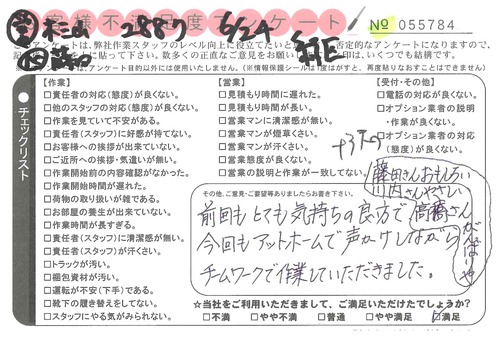 お客様不満足度アンケート
2887 6/24
№ 055784
のアンケートは、弊社作業スタッフのレベル向上に役立てたいと
否定的なアンケートになりますので、
上に貼って下さい。数多くの正直なご意見をお願い
印は、いくつでも結構です。
アンケート目的以外には使用いたしません。(※情報保護シールは1度はがすと、再度貼りなおすことはできません)
チェックリスト
【作業】
□責任者の対応(態度)が良くない。
□他のスタッフの対応(態度)が良くない。
□作業を見ていて不安がある。
□責任者(スタッフ)に好感が持てない。
□お客様への挨拶が出来ていない。
□ご近所への挨拶・気遣いが無い。
□作業開始前の内容確認がなかった。
□作業開始時間が遅れた。
□荷物の取り扱いが雑である。
□お部屋の養生が出来ていない。
□作業時間が長すぎる。
□責任者(スタッフ)に清潔感が無い。
□責任者(スタッフ)が汗くさい。
□トラックが汚い。
□梱包資材が汚い。
□運転が不安(下手)である。
□靴下の履き替えをしてない。
□スタッフにやる気がみられない。
【営業】
□見積もり時間に遅れた。
□見積もり時間が長い。
□営業マンに清潔感が無い。
□営業マンが煙草くさい。
□営業マンが汗くさい。
□営業態度が良くない。
□営業の説明と作業が一致してない。
【受付・その他】
□電話の対応が良くない。
□オプション業者の説明
・作業が良くない。
□オプション業者の対応
(態度)が良くない。
藤田さんおもしろい
川内さんやさしい
高橋さん
がんばりや
その他、ご意見・ご要望等ありましたらお書き下さい。
前回もとても気持ちの良方で
今回もアットホームで声かけしながら
チームワークで作業していただきました。
☆当社をご利用いただきまして、ご満足いただけたでしょうか?
□不満 □やや不満 □普通 □やや満足 ☑満足